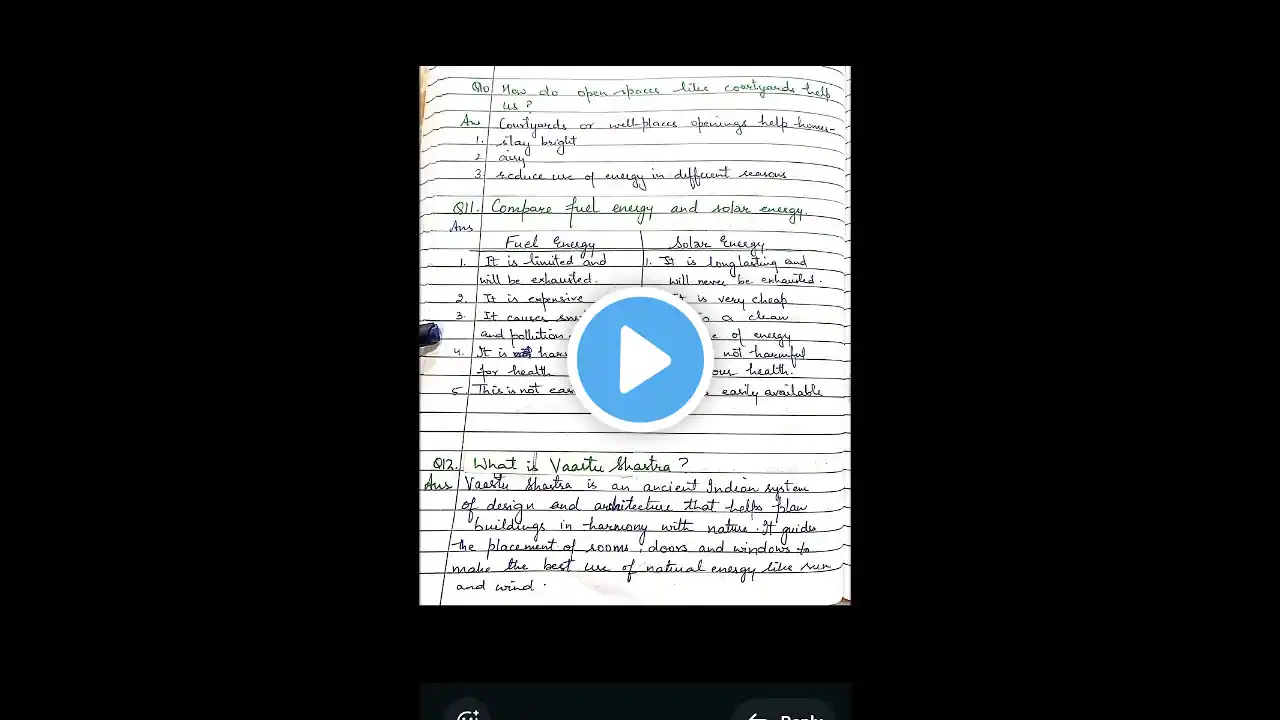 Q10 How do open spaces like courtyards help
us ?
Ans Courtyards or well-places openings help homes-
1. stay bright
2. airy
3. reduce use of energy in different seasons
Q11. Compare fuel energy and solar energy.
Ans
Fuel Energy Solar Energy
1. It is limited and 1. It is long lasting and
will be exhausted. will never be exhausted.
2. It is expensive It is very cheap
3. It causes a clean
and pollution. of energy
4. It is not harmful
for health health.
5 This is not easily available
Q12. What is Vaastu Shastra ?
Ans Vaastu Shastra is an ancient Indian system
of design and architecture that helps plan
buildings in harmony with nature. It guides
the placement of rooms, doors and windows to
make the best use of natural energy like sun
and wind.
Reply